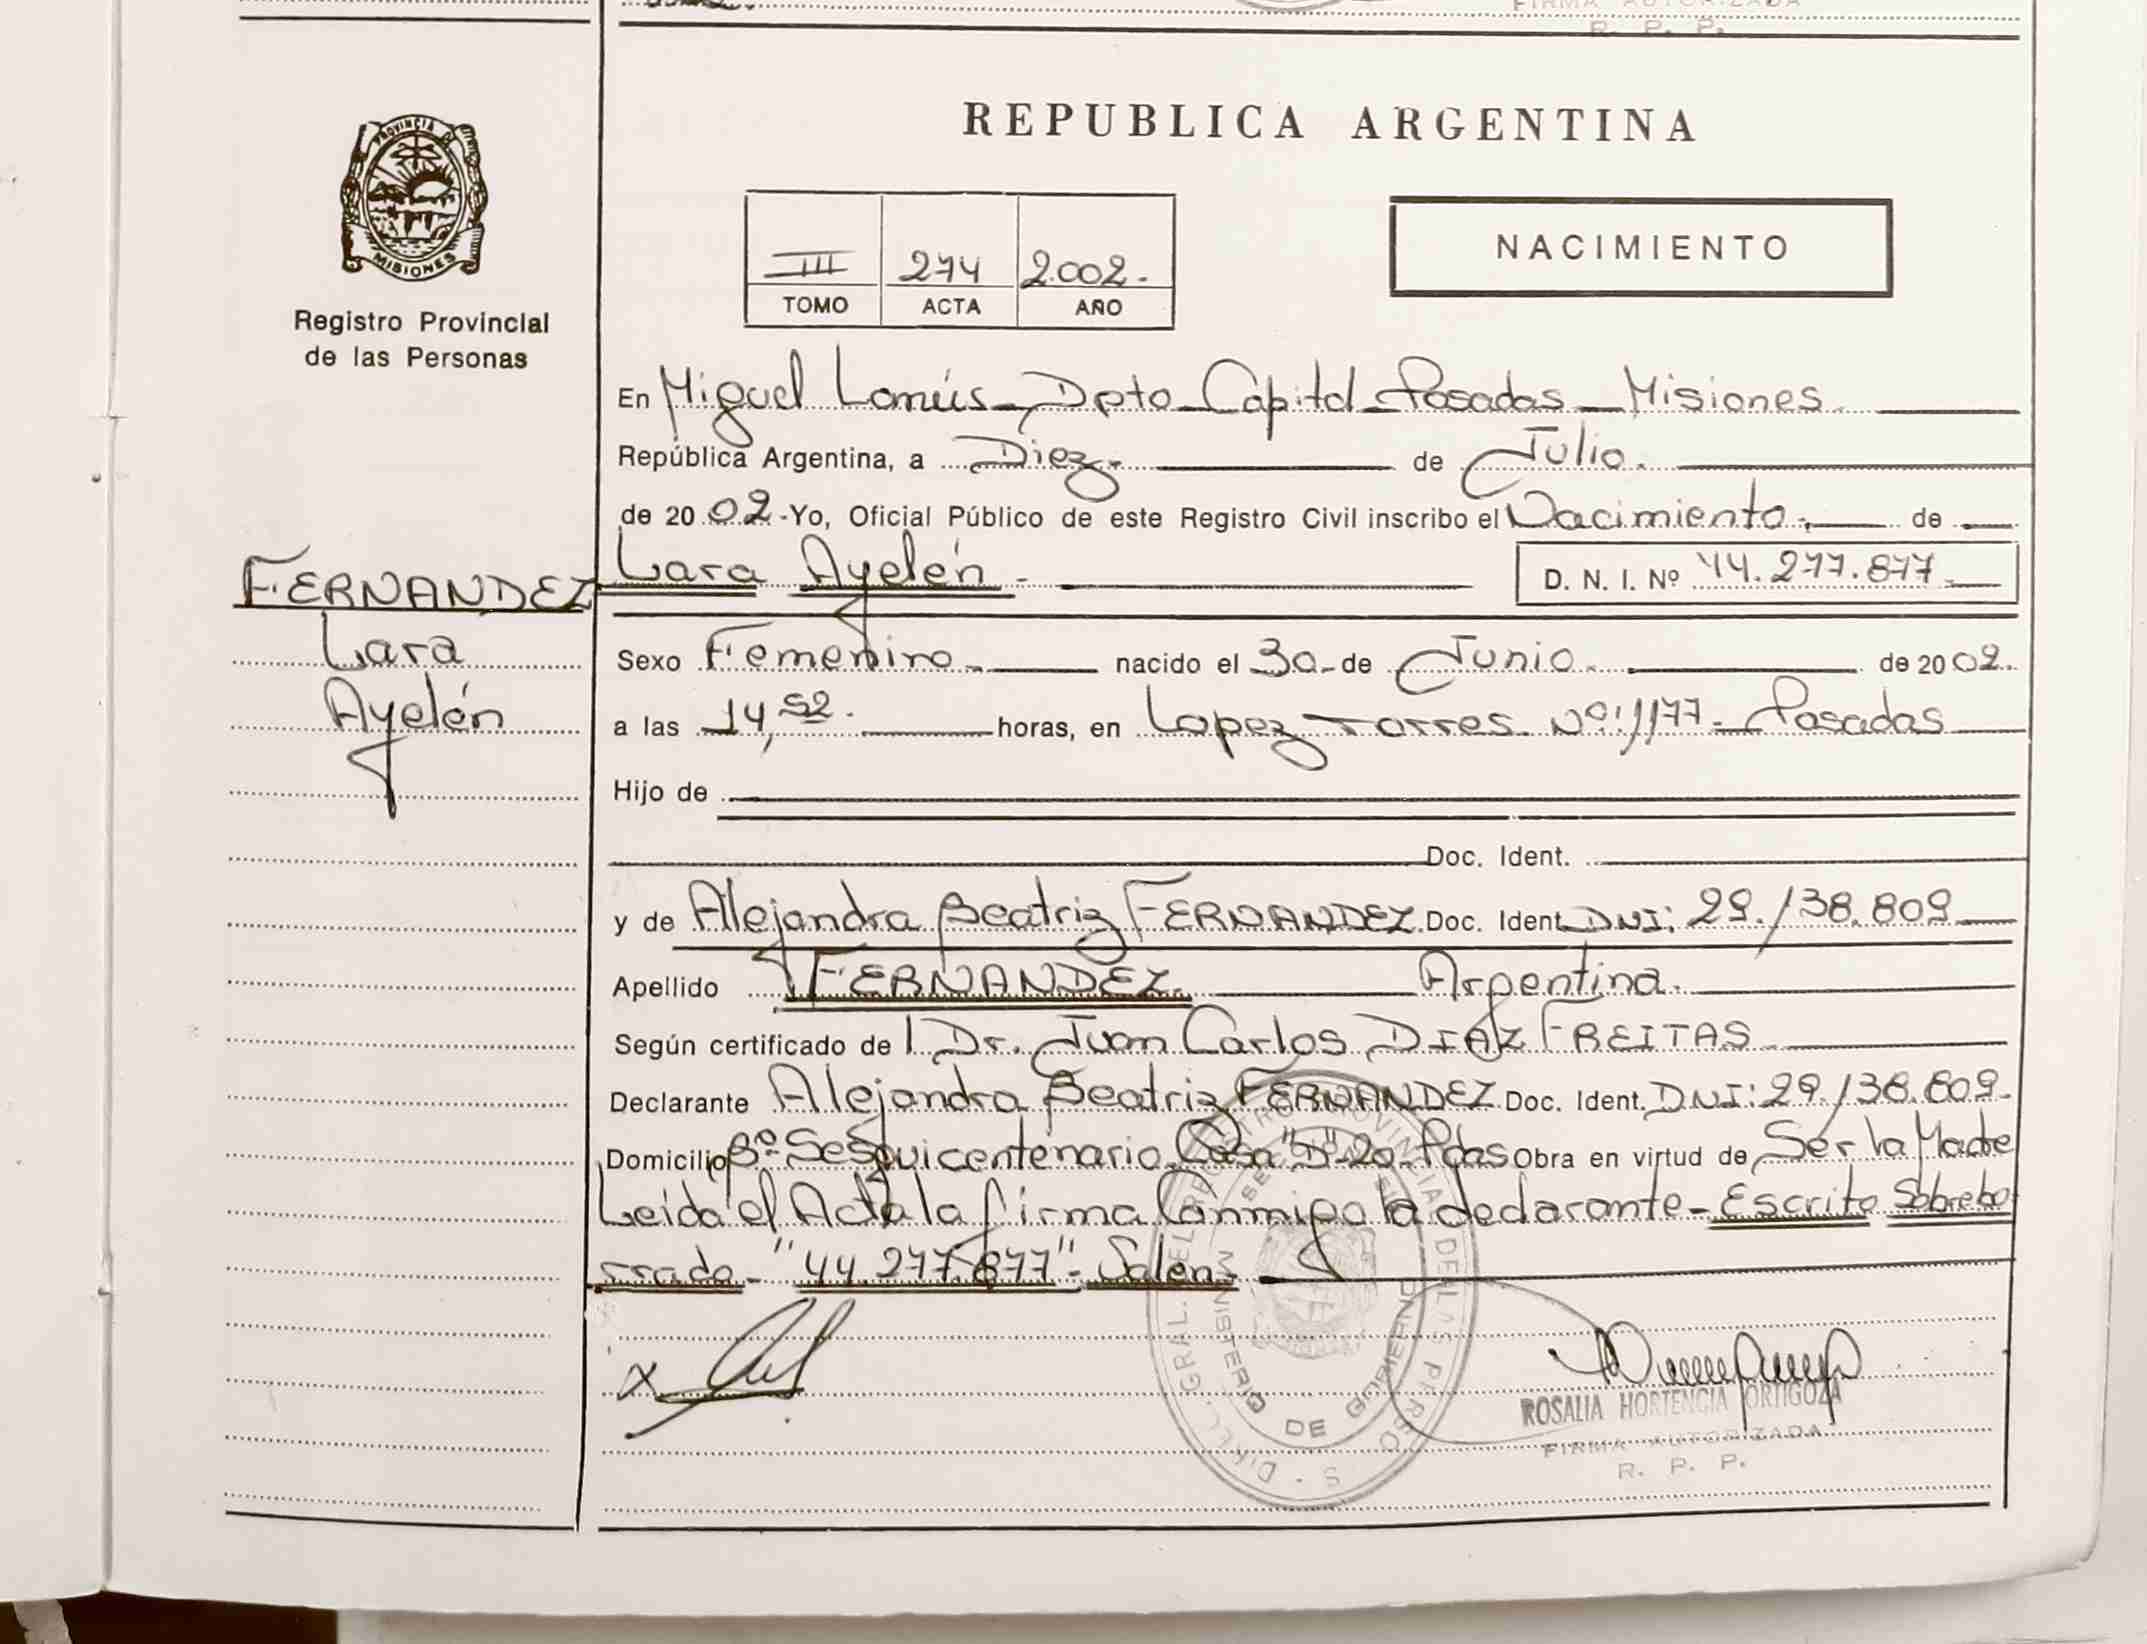 FIRMA AUTORIZADA
R. P. P.
PROVINCIA DE
MISIONES
Registro Provincial
de las Personas
REPUBLICA ARGENTINA
III 274 2.002.-
TOMO ACTA AÑO
NACIMIENTO
En Miguel Lanús - Dpto - Capital - Posadas - Misiones.
República Argentina, a Diez.- de Julio.
de 2002.-Yo, Oficial Público de este Registro Civil inscribo el Nacimiento.- de
FERNANDEZ
Lara
Ayelén
Lara Ayelén -
D. N. I. Nº 44.277.877.-
Sexo Femenino.- nacido el 30.- de Junio. de 2002.
a las 14,52. horas, en Lopez Torres Nº: 1177 - Posadas
Hijo de
Doc. Ident.
y de Alejandra Beatriz FERNANDEZ Doc. Ident. DNI: 29.138.809
Apellido FERNANDEZ. Argentina.
Según certificado de l Dr. Juan Carlos DIAZ FREITAS
Declarante Alejandra Beatriz FERNANDEZ Doc. Ident. DNI: 29.138.809-
Domicilio Bº Sesquicentenario Casa "D"-20- Pdas Obra en virtud de Ser la Madre
Leida el Acta la firma Conmigo la declarante - Escrito Sobrebo
rrado - "44.277.877" - Valen
DIR. GRAL. DEL REGISTRO PROVINCIAL DE LAS PERSONAS
MINISTERIO DE GOBIERNO
X
ROSALIA HORTENCIA ORTIGOZA
FIRMA AUTORIZADA
R. P. P.